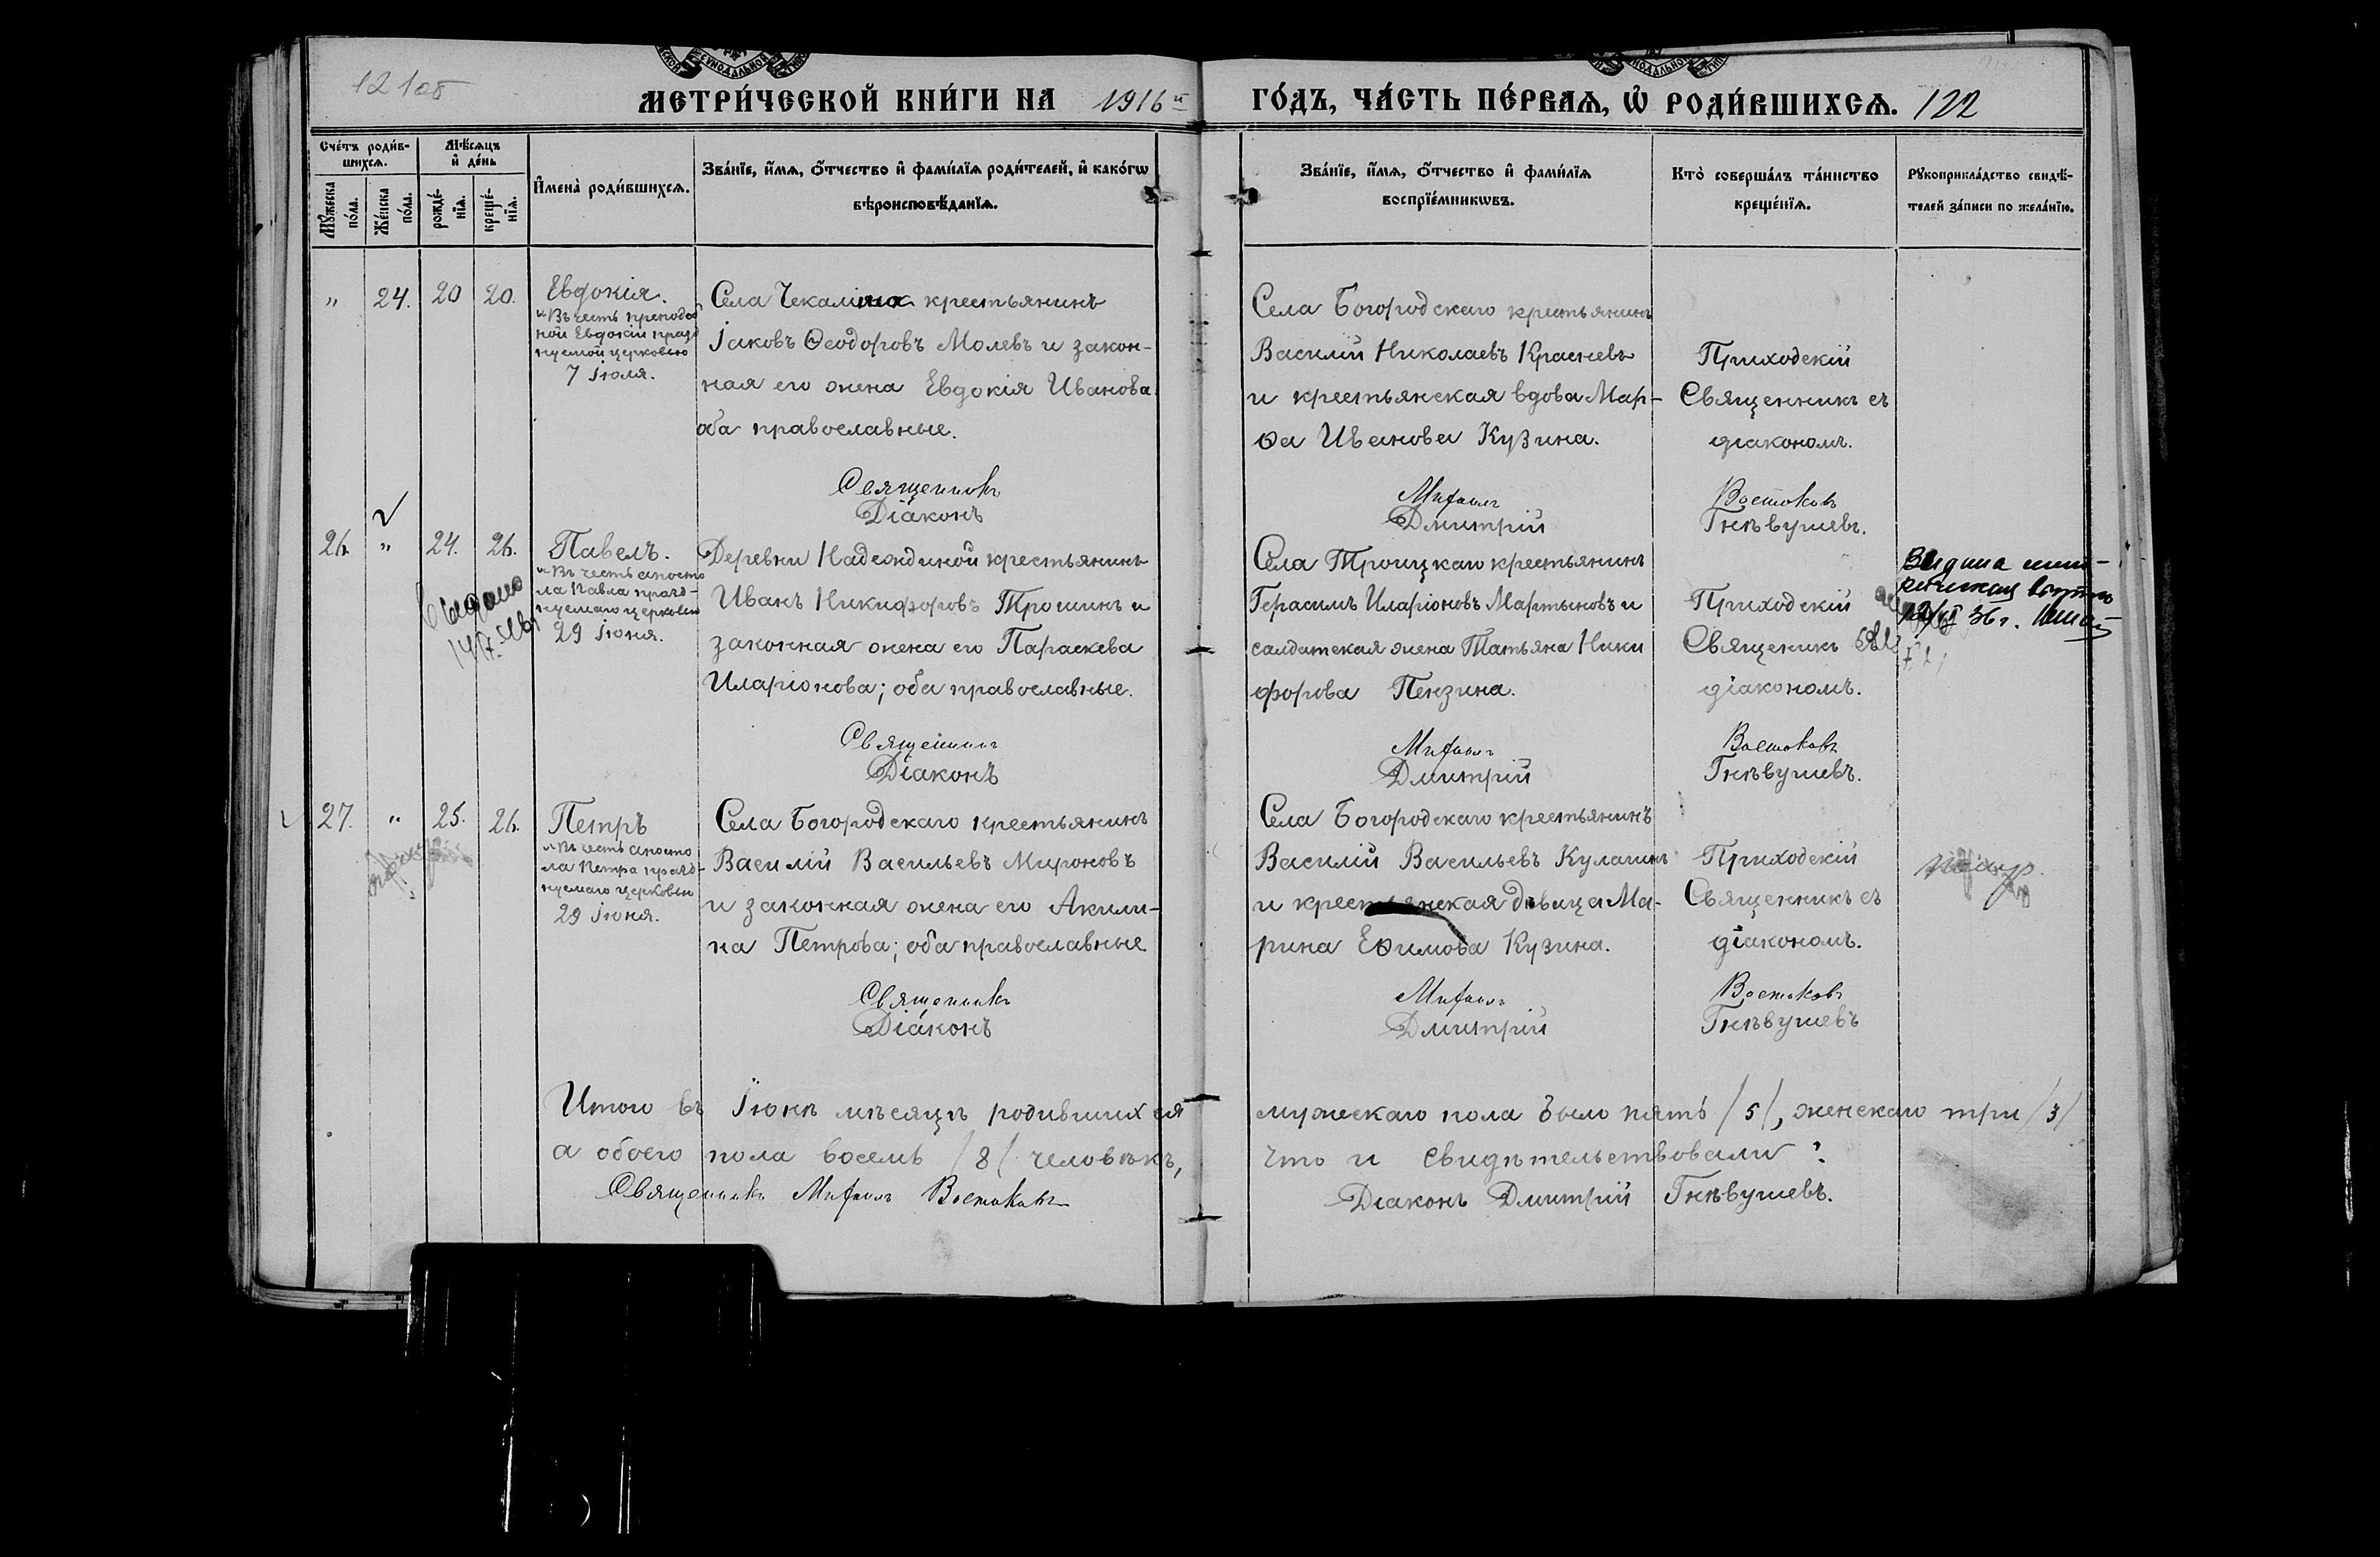 121об
МЕТРИ́ЧЕСКОЙ КНИ́ГИ НА 1916й ГО́ДЪ, ЧА́СТЬ ПЕ́РВАЯ, Ѡ҆ РОДИ́ВШИХСЯ. 122
Сче́тъ роди́в-
шихся.
Мѣ́сяцъ
и҆ де́нь
Мꙋ́жеска
по́ла.
Же́нска
по́ла.
рожде́-
нїя.
креще́-
нїя.
И҆мена̀ роди́вшихся.
Зва́нїе, и҆́мя, ѻ҆́тчество и҆ фами́лїя роди́телей, и҆ како́гѡ
вѣроисповѣ́данїя.
Зва́нїе, и҆́мя, ѻ҆́тчество и҆ фами́лїя
воспрїе́мникѡвъ.
Кто̀ соверша́лъ та́инство
креще́нїя.
Рꙋкоприкла́дство свидѣ́-
телей за́писи по жела́нїю.
" 24. 20 20.
Евдокія.
"Въ честь преподоб
ной Евдокіи празд
нуемой церковью
7 Іюля.
Села Чекалина крестьянинъ
Іаковъ Ѳеодоровъ Молевъ и закон-
ная его жена Евдокія Иванова
оба православные.
Села Богородскаго крестьянинъ
Василій Николаевъ Краснев
и крестьянская вдова Мар-
ѳа Иванова Кузина.
Приходскій
Священникъ съ
діакономъ.
Священникъ Михаилъ Востоковъ
Діаконъ Дмитрій Гнѣвушевъ.
26. " 24. 26.
Павелъ.
"Въ честь апосто
ла Павла празд-
нуемаго церковью
29 Іюня.
Деревни Надеждиной крестьянинъ
Иванъ Никифоровъ Трошинъ и
законная жена его Параскева
Иларіонова; оба православные.
Села Троицкаго крестьянинъ
Герасимъ Иларіоновъ Мартыновъ и
салдатская жена Татьяна Ники
форова Пензина.
Приходскій
Священикъ
діакономъ.
36 г.
Священникъ Михаилъ Востоковъ
Діаконъ Дмитрій Гнѣвушевъ.
27. " 25. 26.
Петръ
"Въ честь апосто
ла Петра празд-
нуемаго церковью
29 Іюня.
Села Богородскаго крестьянинъ
Василій Васильевъ Мироновъ
и законная жена его Акили-
на Петрова; оба православные
Села Богородскаго крестьянинъ
Василій Васильевъ Кулагинъ
и крестьянская дѣвица Ма-
рина Еѳимова Кузина.
Приходскій
Священникъ съ
діакономъ.
Священникъ Михаилъ Востоковъ
Діаконъ Дмитрій Гнѣвушевъ
Итого въ Іюнѣ мѣсяцѣ родившихся мужескаго пола было пять /5/, женскаго три /3/
а обоего пола восемь /8/ человѣкъ, что и свидѣтельствовали:
Священникъ Михаилъ Востоковъ
Діаконъ Дмитрій Гнѣвушевъ.